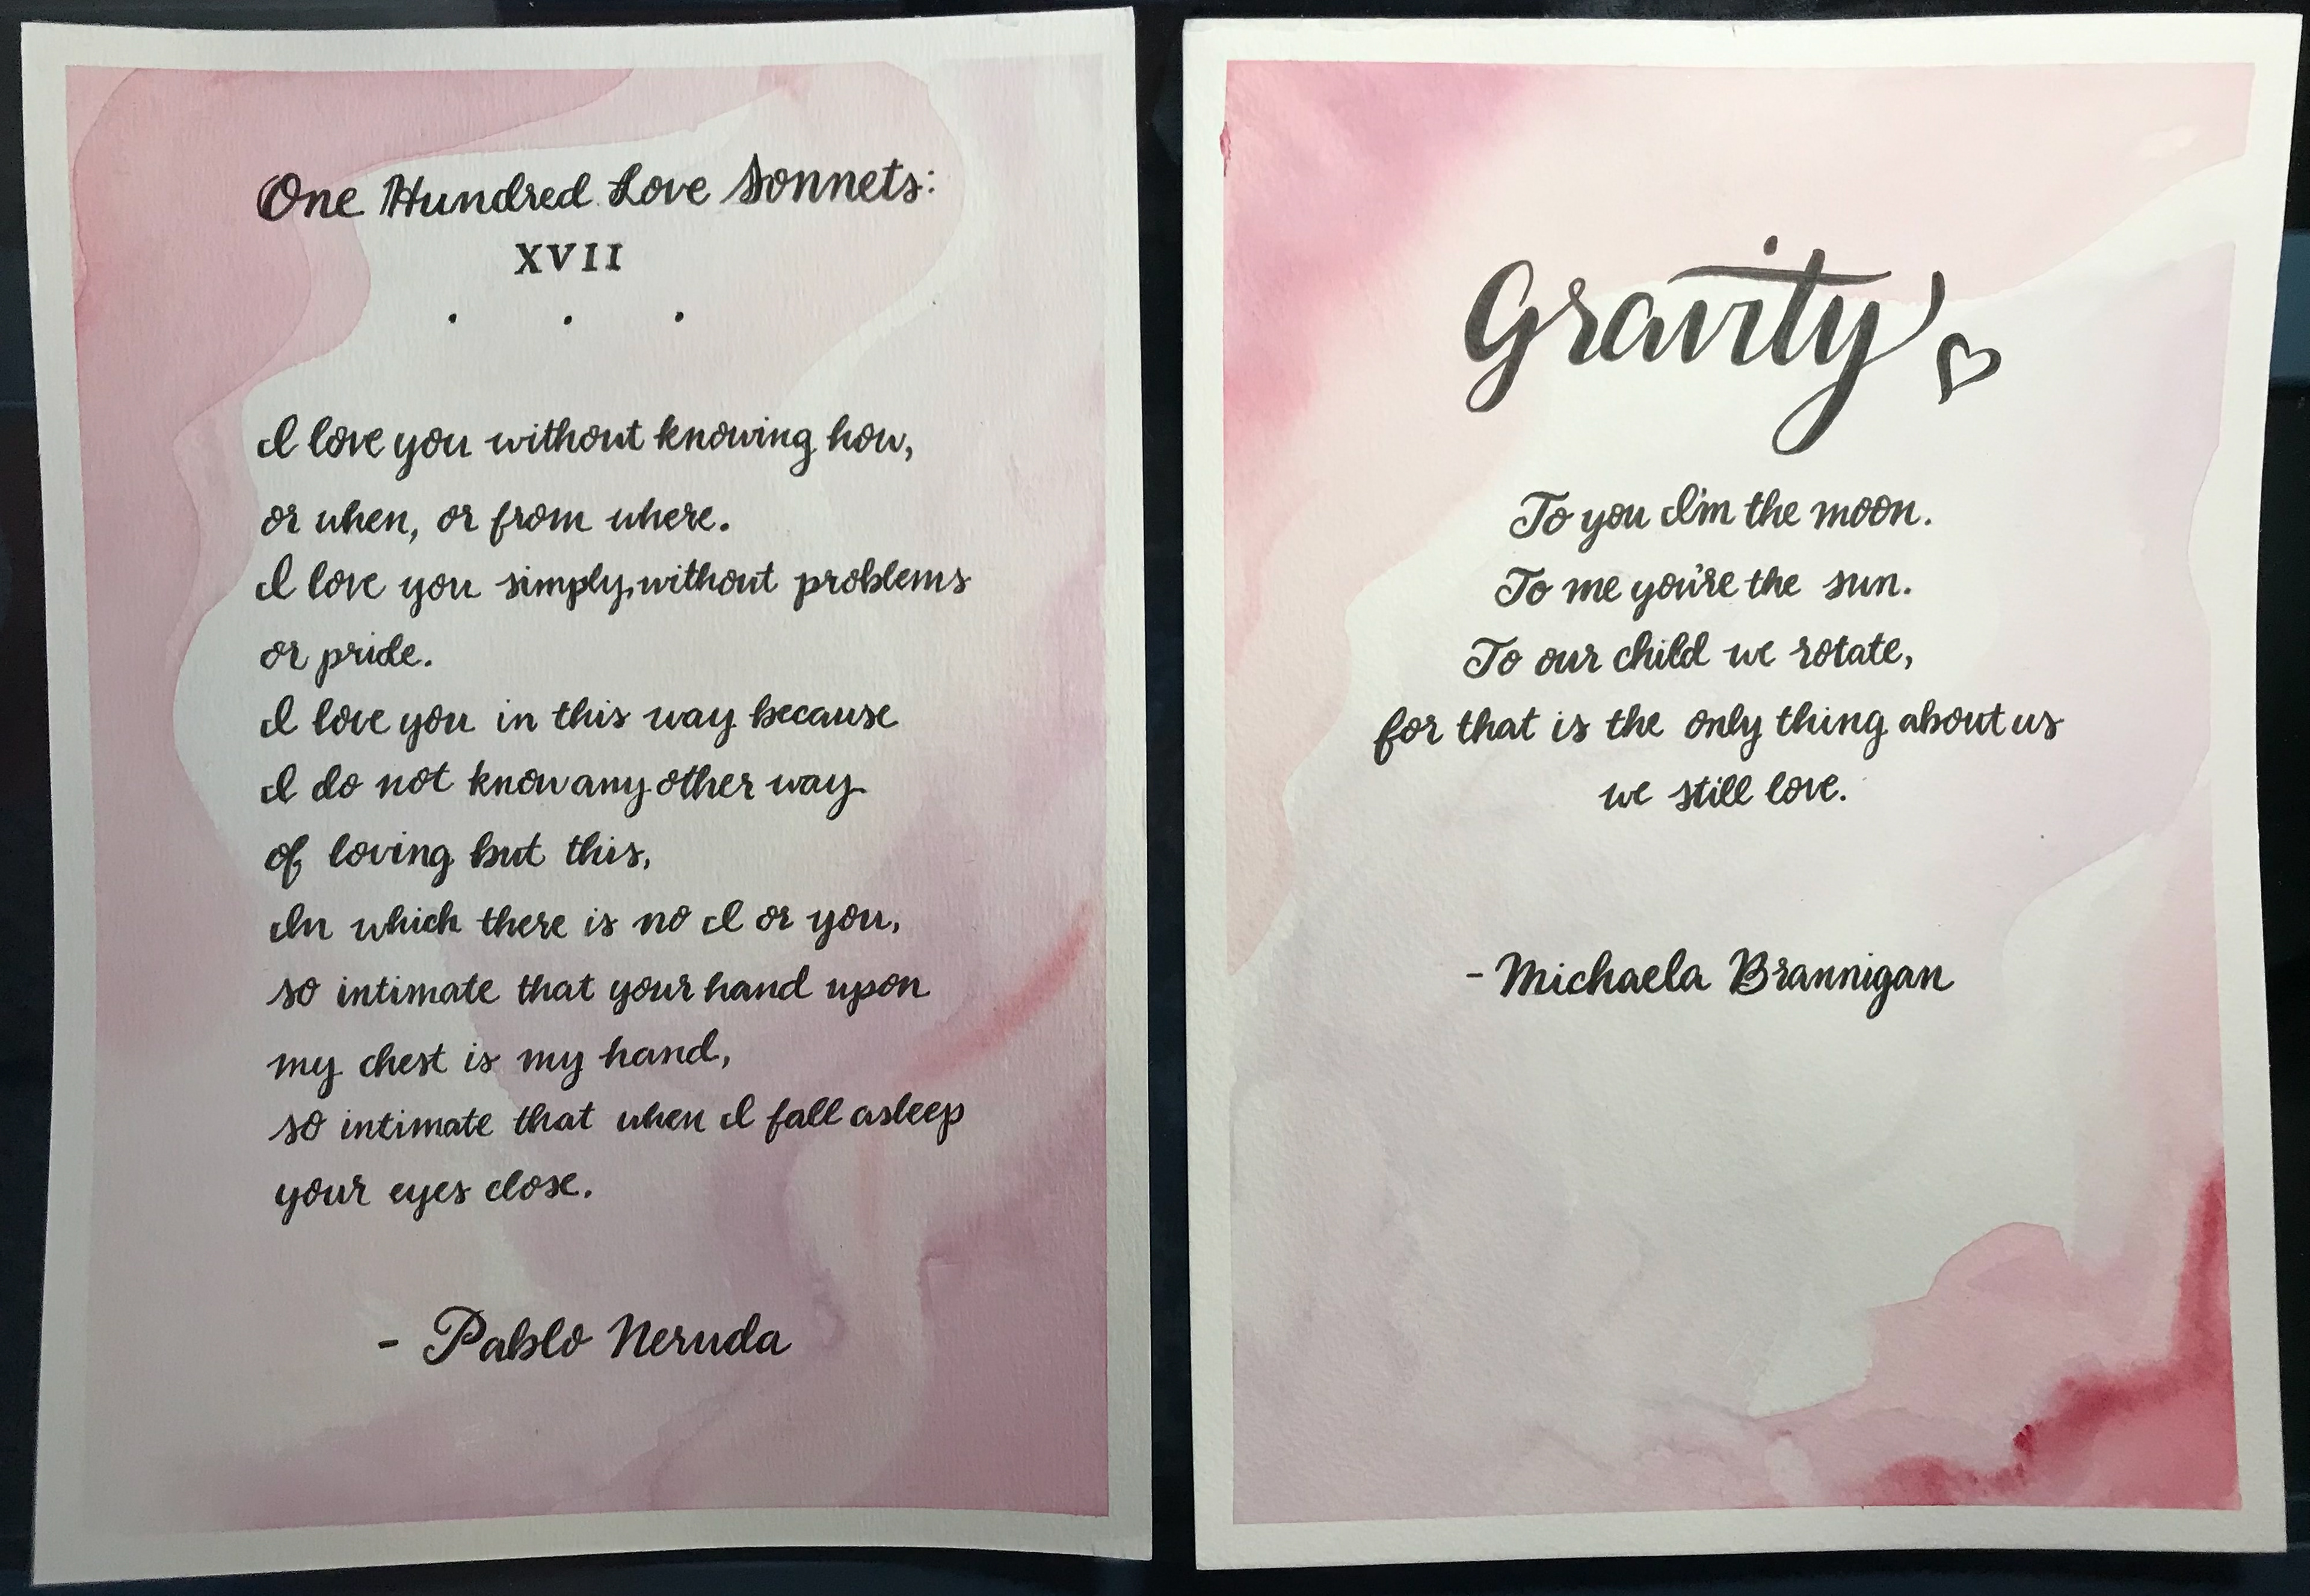 One Hundred Love Sonnets:
XVII
. . .
I love you without knowing how,
or when, or from where.
I love you simply, without problems
or pride.
I love you in this way because
I do not know any other way
of loving but this,
In which there is no I or you,
so intimate that your hand upon
my chest is my hand,
so intimate that when I fall asleep
your eyes close.
- Pablo Neruda
Gravity
To you I'm the moon.
To me you're the sun.
To our child we rotate,
for that is the only thing about us
we still love.
- Michaela Brannigan